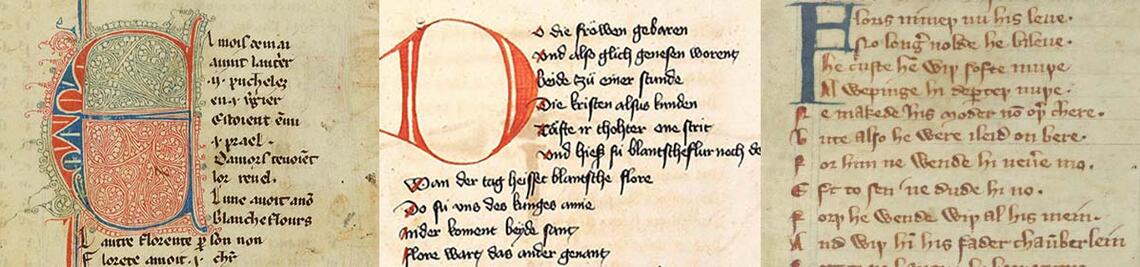 E
l mois de mai
avint lautrer
.ij. puceles
en .j. vgier
Estoient en mi
.j. prael.
Damors tenoient
lor reuel.
Lune auoit anon
Blancheflours
L autre florente p son non
F lorete auoit .j.
D
o die fröwen gebaren
vnd also glich genesen worent
beide tzü einer stunde
Die kristen alsus kunden
Täfte ir thohter one strit
vnd hieß sü blantscheflur noch de
Wan der tag heisset blantsche flore
Do sü vns des kunges amie
ander koment beyde sant
flore wart das ander genant
F loris nimeþ nu his leue.
No lonḡ nolde he bileue.
he custe hē wiþ softe muþe
Al wepinge hi deꝑteþ nuþe.
F e makede his moder nō oþ chere.
B ute also he were ileid on bere.
F or him ne wende hi neu̅e mo.
E ft to sen ne dude hi no.
F orþ he wende wiþ al his mein.
A nd wiþ hī his fader chaūberlein